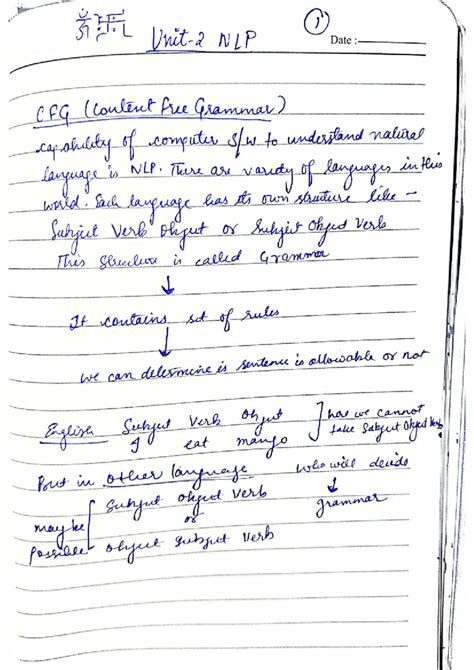 ॐ 卐
1
Unit-2 NLP
Date :
CFG (Content free Grammar)
capability of computer S/w to understand natural
language is NLP. There are variety of languages in this
world. Each language has its own structure like -
Subject Verb Object or Subject Object Verb
This Structure is called Grammar
↓
It contains set of rules
↓
we can determine is sentence is allowable or not
English Subject Verb Object ] here we cannot
I eat mango take Subject Object Verb
But in other language who will decide
Subject Object Verb ↓
may be or grammar
possible Object Subject Verb